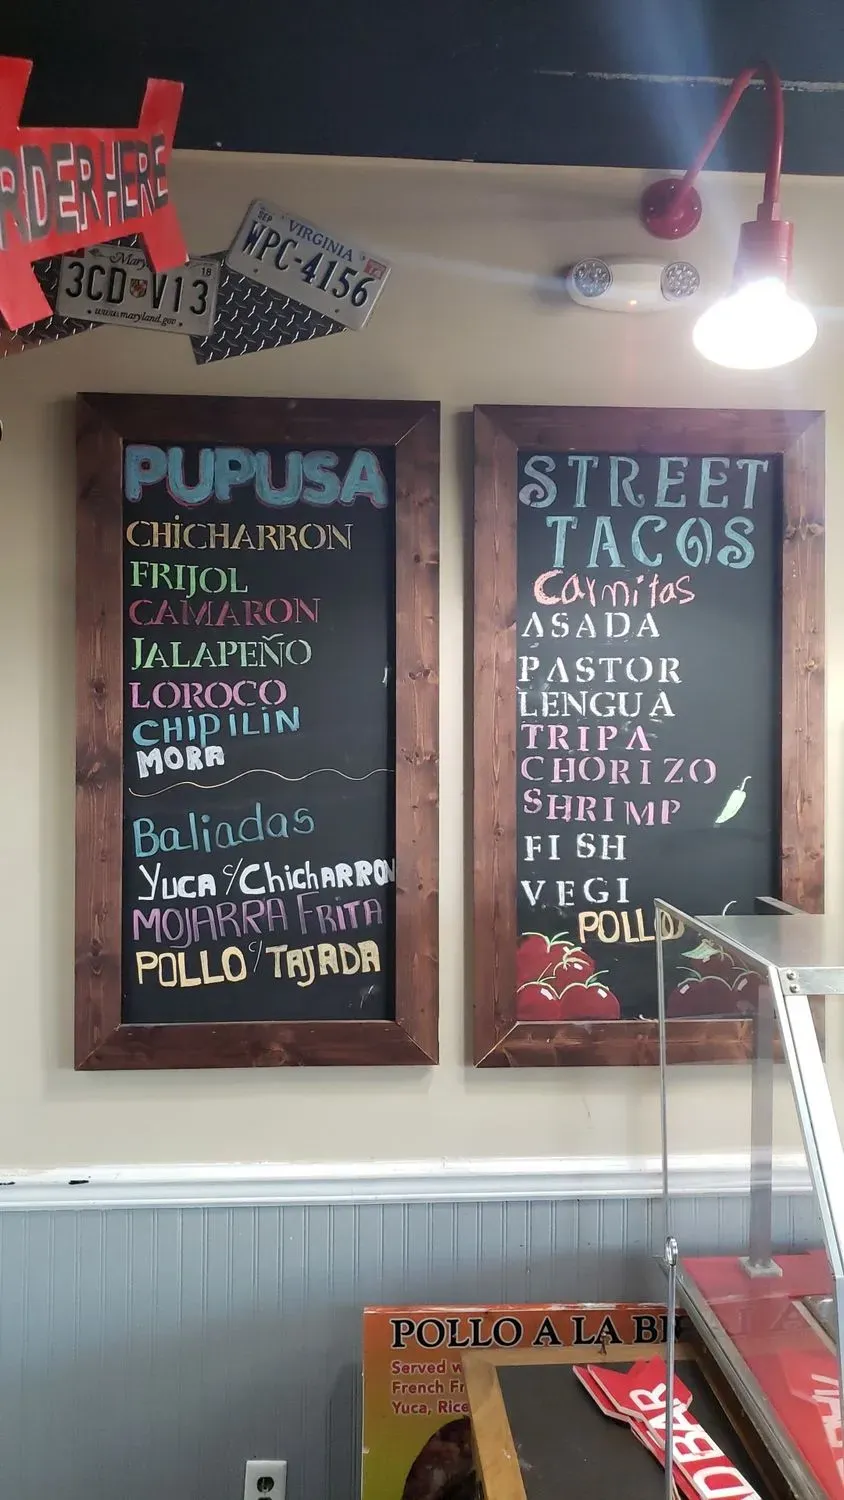 RDER HERE
Mary
18
3CD V13
www.maryland.gov
SEP
VIRGINIA
WPC-4156
PUPUSA
CHICHARRON
FRIJOL
CAMARON
JALAPEÑO
LOROCO
CHIPILIN
MORA
Baliadas
YUCA c/ChichARRON
MOJARRA FRITA
POLLO c/ TAJADA
STREET
TACOS
Carnitas
ASADA
PASTOR
LENGUA
TRIPA
CHORIZO
SHRIMP
FISH
VEGI
POLLO
POLLO A LA BR
Served w
French Fr
Yuca, Rice
D BAR